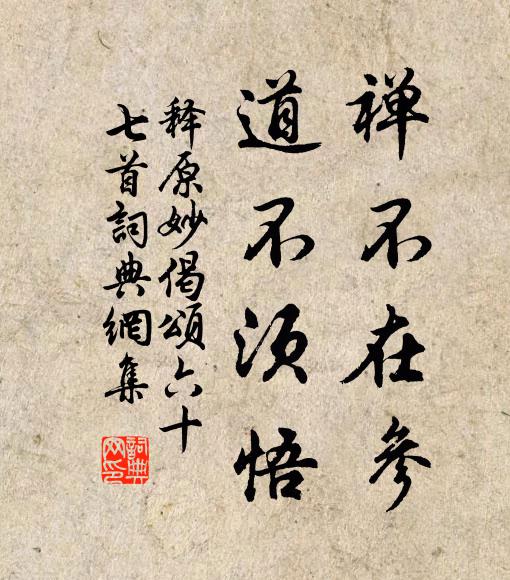 禅不在参
道不须悟
释原妙偈颂六十
七首詞典網集
詞典
网印